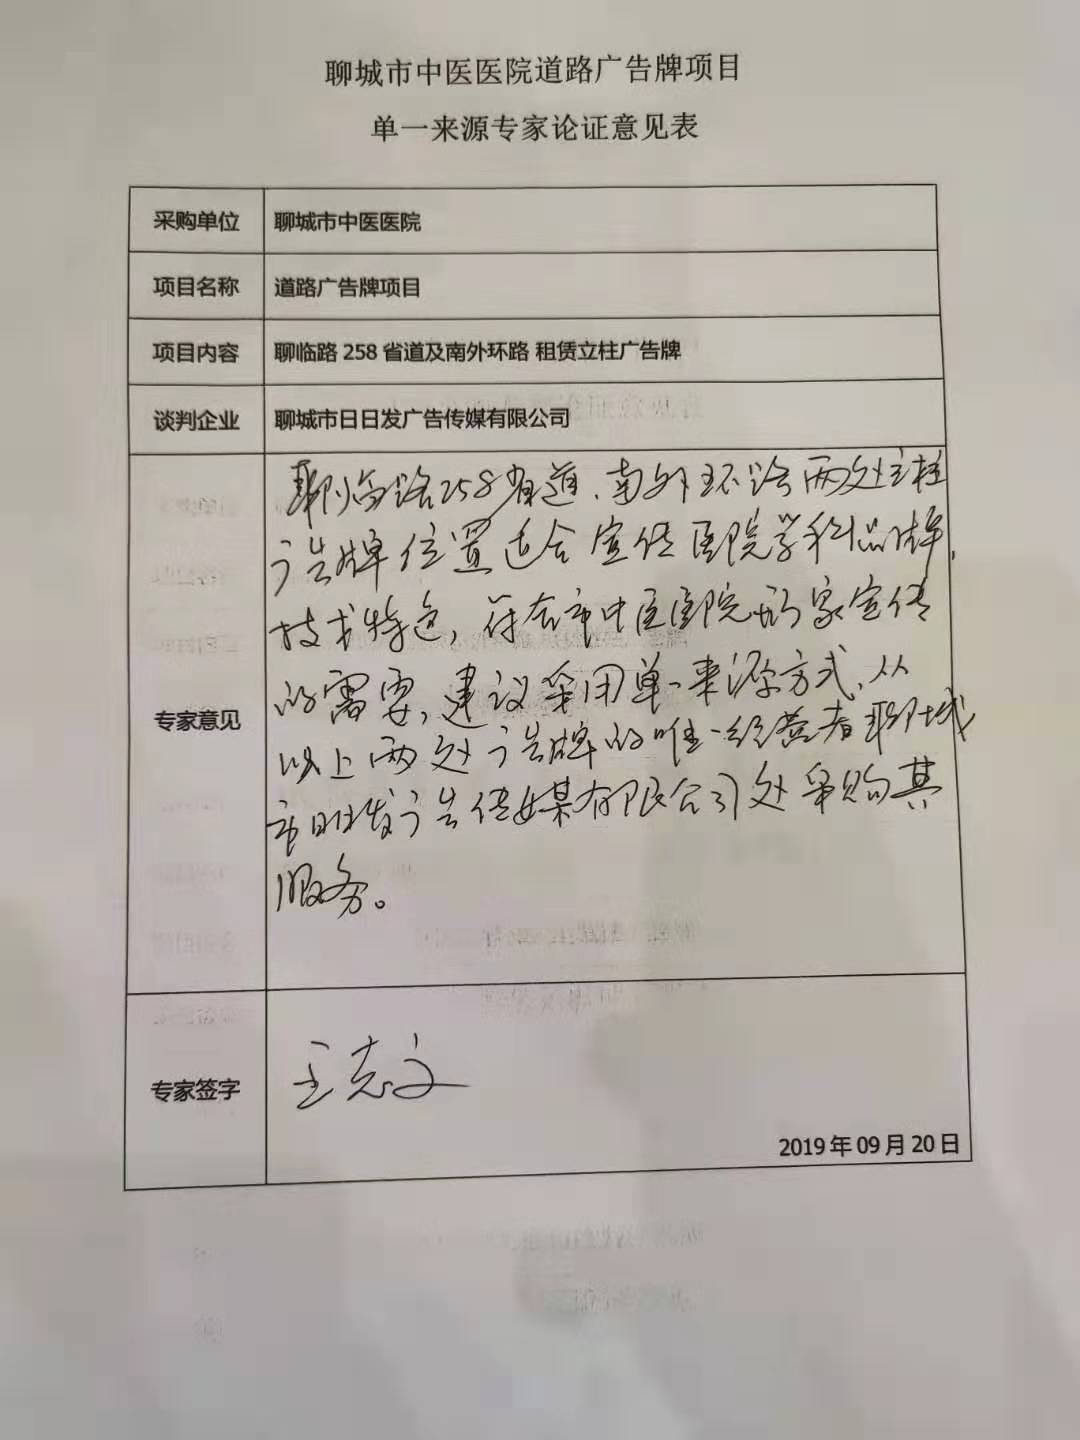 聊城市中医医院道路广告牌项目
单一来源专家论证意见表
采购单位 聊城市中医医院
项目名称 道路广告牌项目
项目内容 聊临路 258 省道及南外环路 租赁立柱广告牌
谈判企业 聊城市日日发广告传媒有限公司
专家意见
聊临路258省道、南外环路两处立柱
广告牌位置适合宣传医院学科品牌、
技术特色，符合市中医医院形象宣传
的需要，建议采用单一来源方式，从
以上两处广告牌的唯一经营者聊城
市日日发广告传媒有限公司处采购其
服务。
专家签字 王志文
2019 年 09 月 20 日